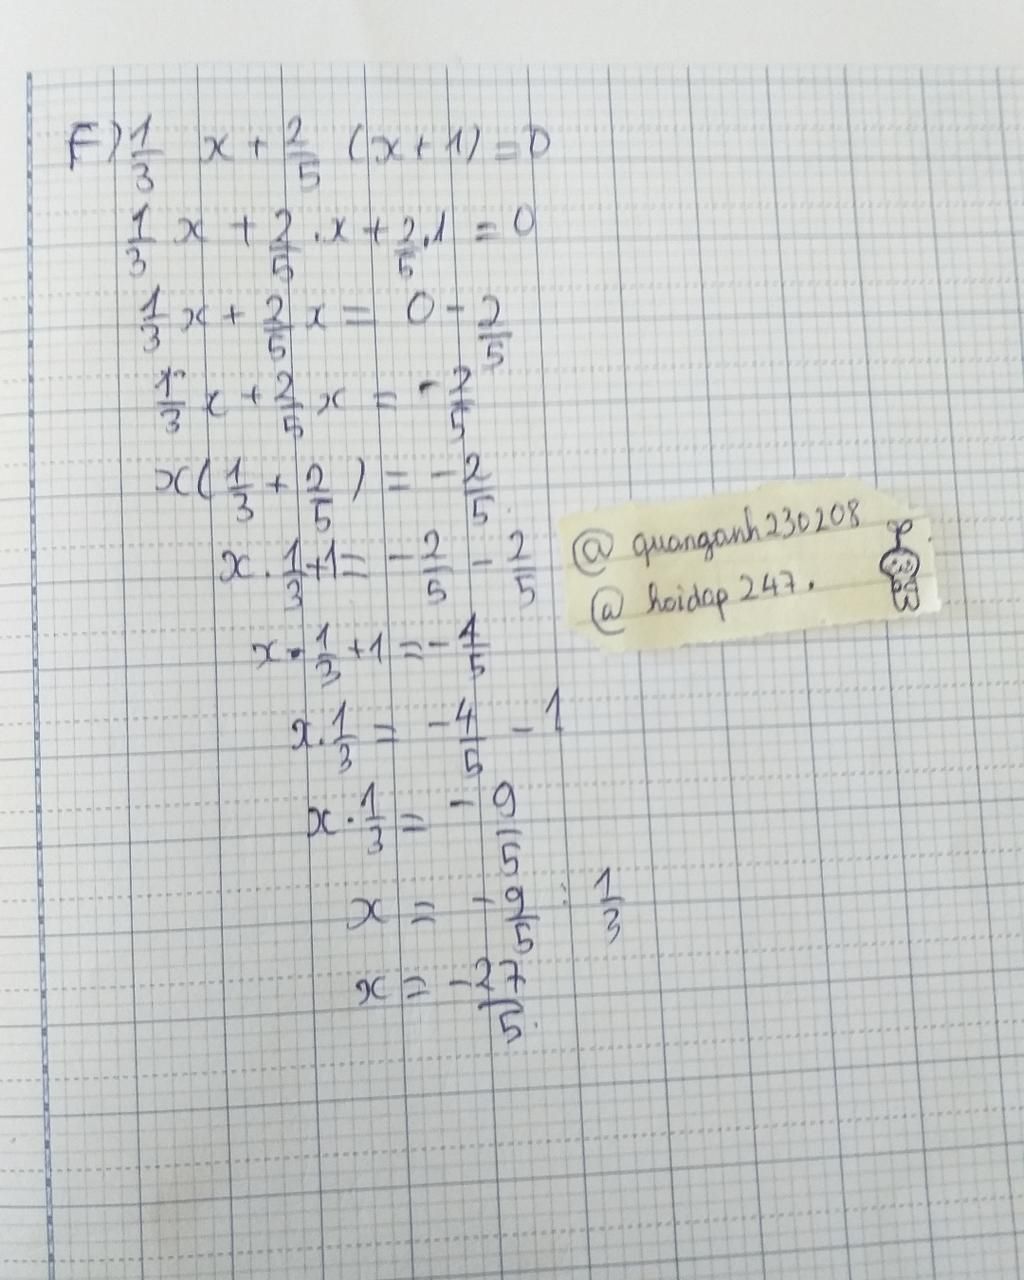 F) 1/3 x + 2/5 (x + 1) = 0
1/3 x + 2/5 . x + 2/5 . 1 = 0
1/3 x + 2/5 x = 0 - 2/5
1/3 x + 2/5 x = - 2/5
x ( 1/3 + 2/5 ) = - 2/5
x . 1/3 + 1 = - 2/5 - 2/5
x . 1/3 + 1 = - 4/5
x . 1/3 = - 4/5 - 1
x . 1/3 = - 9/5
x = - 9/5 : 1/3
x = - 27/5
@ quanganh230208
@ hoidap 247.